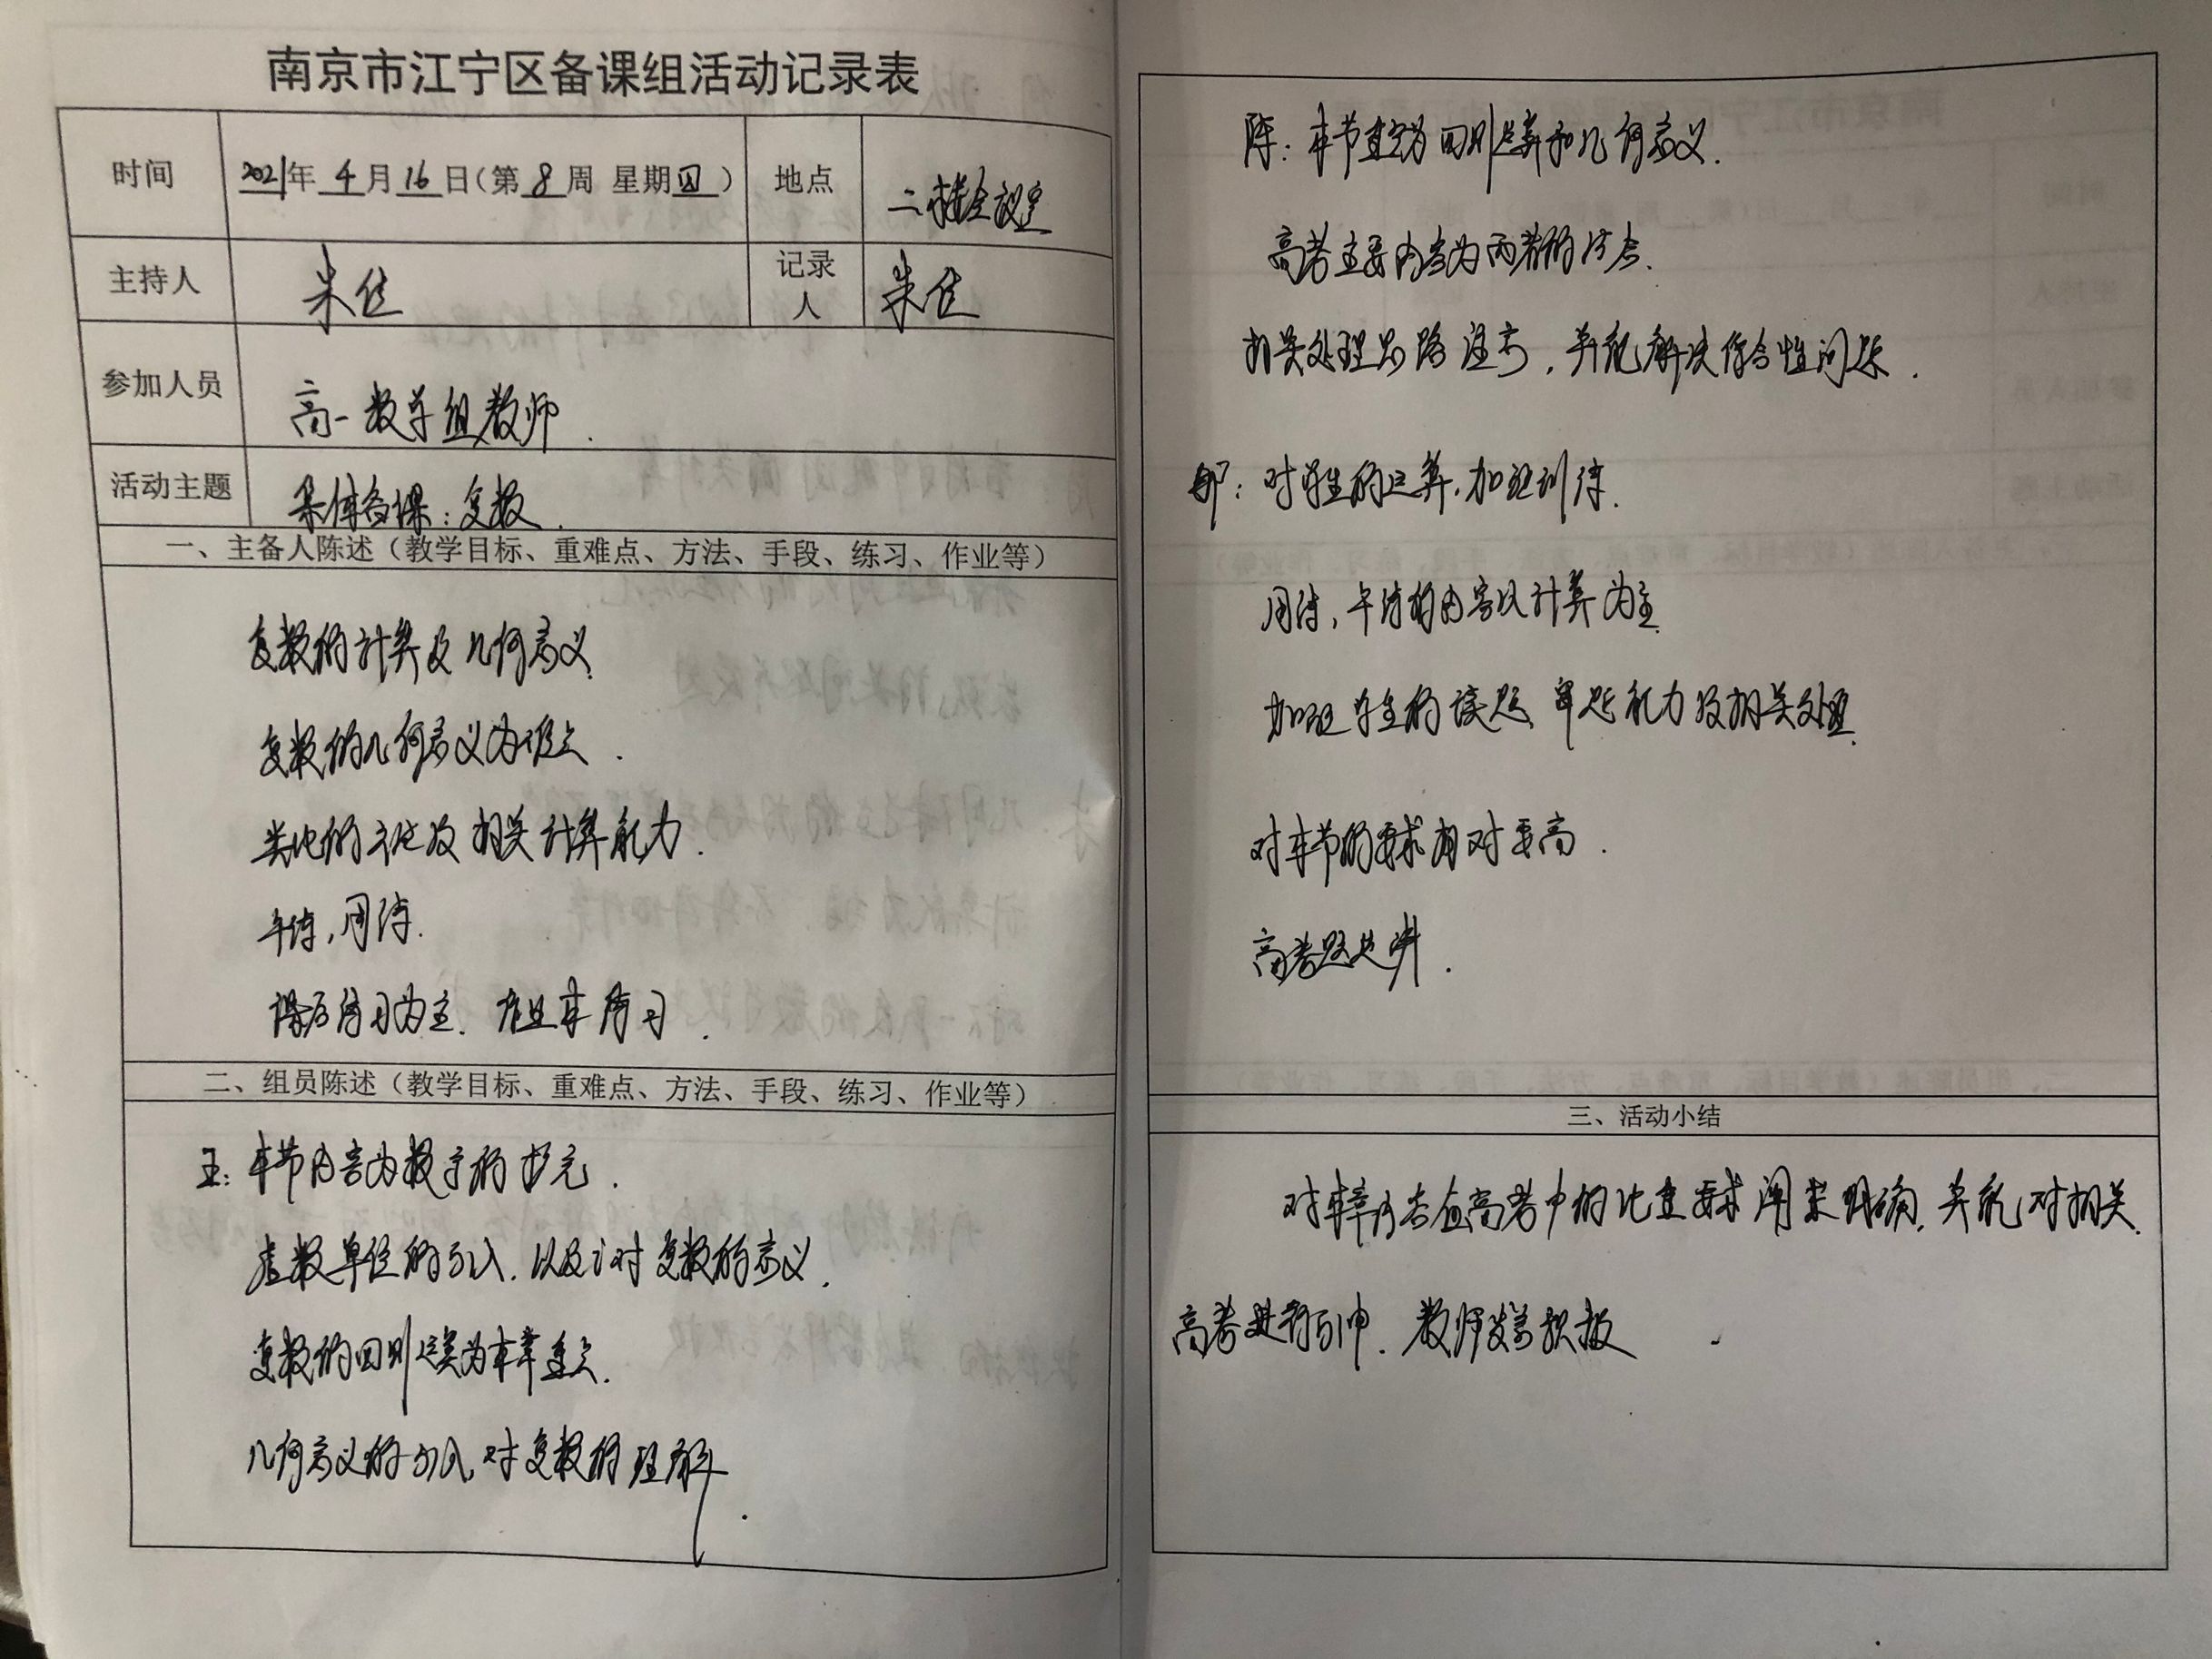 南京市江宁区备课组活动记录表
时间 2021年 4月16日(第 8周 星期四) 地点 二楼会议室
主持人 朱佳 记录人 朱佳
参加人员 高一数学组教师.
活动主题 集体备课:复数.
一、主备人陈述(教学目标、重难点、方法、手段、练习、作业等)
复数的计算及几何意义.
复数的几何意义为难点.
类比的方法及相关计算能力.
午练,周练.
课后练习为主. 作业本练习.
二、组员陈述(教学目标、重难点、方法、手段、练习、作业等)
王:本节内容为数字的扩充.
虚数单位的引入. 以及对复数的意义.
复数的四则运算为本章重点.
几何意义的引入,对复数的理解.
陈:本节重点为四则运算和几何意义.
高考主要内容为两者的结合.
相关处理思路注意,并能解决综合性问题.
邹:对学生的运算,加强训练.
周练,午练的内容以计算为主.
加强学生的读题、审题能力及相关处理.
对本节的要求相对要高.
高考题选讲.
三、活动小结
对本章内容在高考中的比重要求 明确, 并能对相关
高考进行引申. 教师发言积极